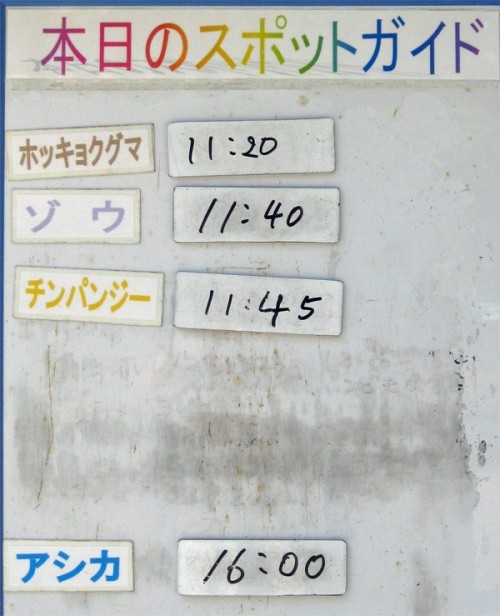 本日のスポットガイド
ホッキョクグマ 11:20
ゾウ 11:40
チンパンジー 11:45
アシカ 16:00